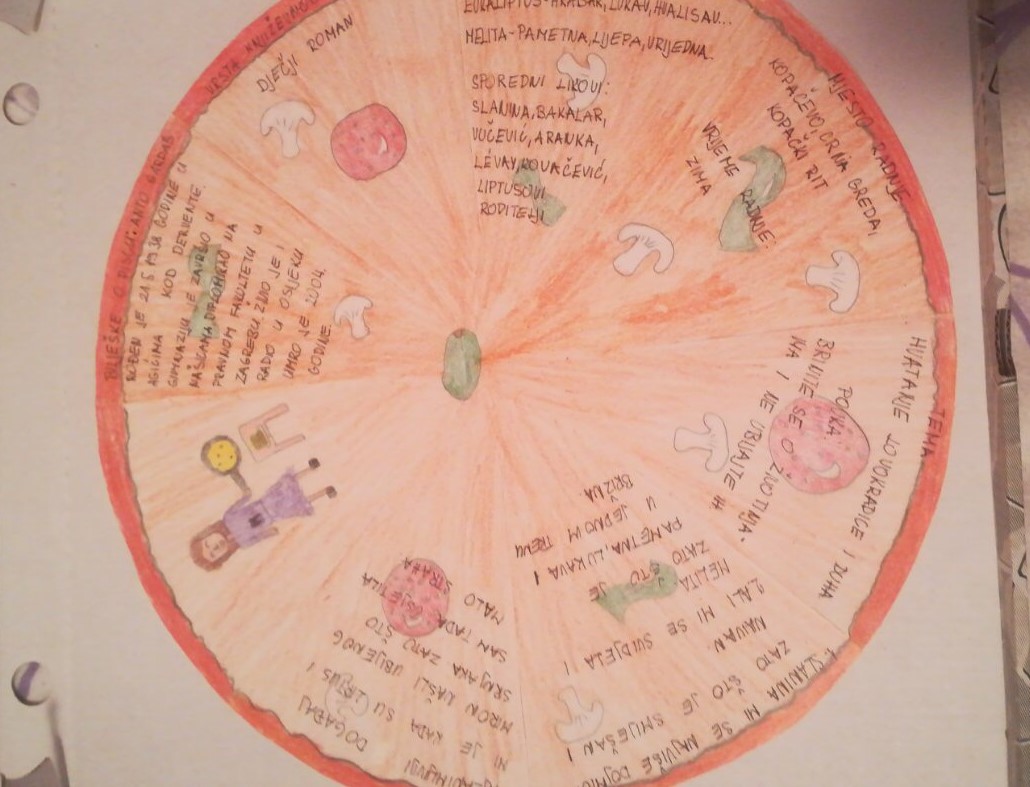 VRSTA KNJIŽEVNOG
DJEČJI ROMAN
EUKALIPTUS-HRABAR, LUKAV, HVALISAV...
MELITA-PAMETNA, LIJEPA, VRIJEDNA.
SPOREDNI LIKOVI:
SLANINA, BAKALAR,
VUČEVIĆ, ARANKA,
LÉVAY, KOVAČEVIĆ,
LIPTUSOVI
RODITELJI
MJESTO RADNJE
KOPAČEVO, CRNA GREDA,
KOPAČKI RIT
VRIJEME RADNJE:
ZIMA
TEMA
HVATANJE LOVOKRADICE I DUHA
POUKA:
BRINITE SE O ŽIVOTINJA-
NA I NE UBIJAJTE IH
SLANINA MI SE NAJVIŠE DOJMIO
ZATO ŠTO JE SMIJEŠAN I
NAIVAN.
ALI MI SE SVIDJELA I
MELITA
ZATO ŠTO JE
PAMETNA, LUKAVA I
U JEDNOM TRENU
BRIŽNA
DOGAĐAJ
MI JE KADA SU LIPTUS I
MIRON NAŠLI UBIJENOG
SRNJAKA ZATO ŠTO
SAM TADA OSJETILA
MALO STRAHA
BILJEŠKE O PISCU: ANTO GARDAŠ
ROĐEN JE 21.5.1938. GODINE U
AGIĆIMA KOD DERVENTE.
GIMNAZIJU JE ZAVRŠIO U
NAŠICAMA, DIPLOMIRAO NA
PRAVNOM FAKULTETU U
ZAGREBU. ŽIVIO JE I
RADIO U OSIJEKU
UMRO JE 2004.
GODINE.